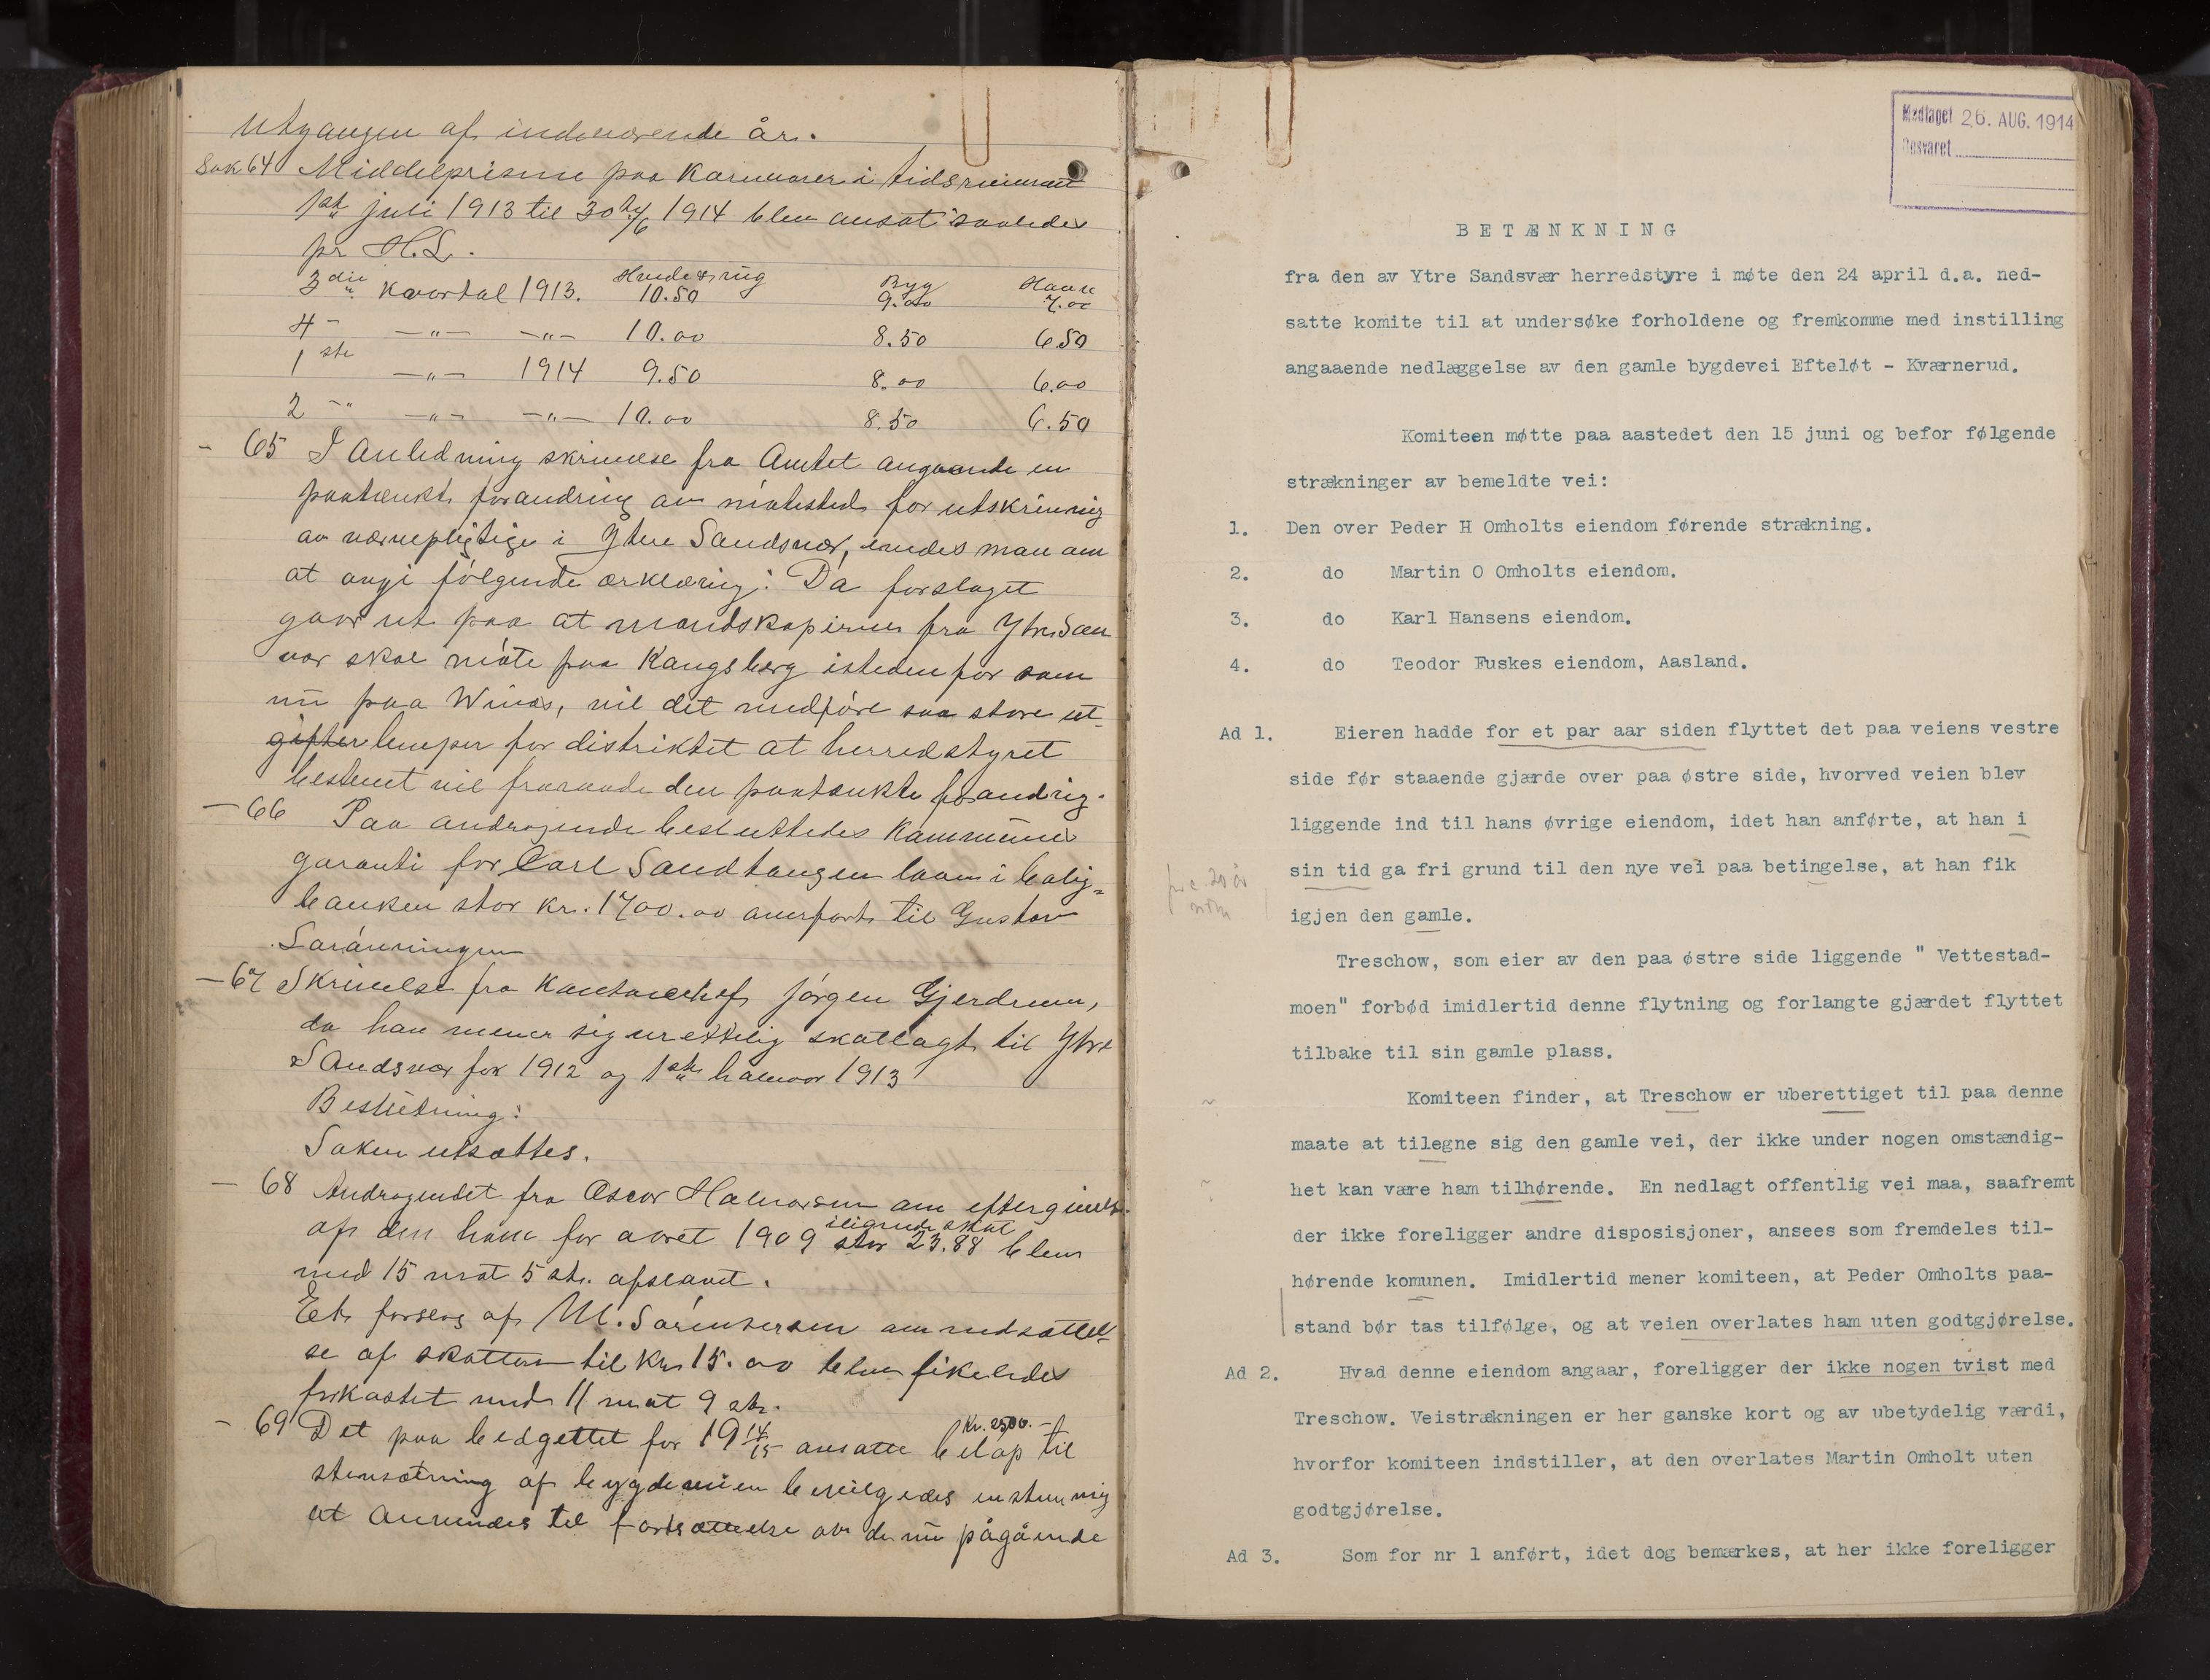 utgangen af indeværende år.
Sak 64 Middelprisene paa Kornvarer i tidsrummet
1ste juli 1913 til 30te/6 1914 blev ansat saaledes
pr H.L.
3die Kvartal 1913. Hvede & rug 10.50 Byg 9.00 Havre 7.00
4 " —"— —"— 10.00 8.50 6.50
1ste —"— 1914 9.50 8.00 6.00
2 —" —"— —"— 10.00 8.50 6.50
- 65 I Anledning skrivelse fra Amtet angaaende en
paatænkt forandring av møtested for utskrivning
av værnepligtige i Ytre Sandsvær, enedes man om
at avgi følgende ærklæring: Da forslaget
gaar ut paa at mandskaperne fra Ytre San
vær skal møte paa Kongsberg istedenfor som
nu paa Winæs, vil det medføre saa store ut-
gifter lemper for distriktet at herredstyret
bestemt vil fraraade den paatænkte forandrig.
- 66 Paa andragende besluttedes Kommunes
garanti for Carl Sandtangen laan i bolig-
banken stor kr. 1700.00 overført til Gustav
Sarønningen
- 67 Skrivelse fra Kontorchef Jørgen Gjerdrum,
da han mener sig urettelig skatlagt til Ytre
Sandsvær for 1912 og 1ste halvaar 1913
Beslutning:
Saken utsættes.
- 68 Andragendet fra Oscar Halvorsen om eftergivels.
af den ham for aaret 1909 ilignede skat stor 23.88 blev
med 15 mot 5 st. afslaaet.
Et forslag af M. Sørensersen om nedsættel-
se af skatten til Kr 15.00 blev likeledes
forkastet med 11 mot 9 st.
- 69 Det paa budgettet for 19 14/15 ansatte beløp Kr. 2500.- til
stensætning af bygdeveien bevilgedes enstemmig
at anvendes til fortsættelse av de nu pågående
Modtaget 26. AUG. 1914
Besvaret
BETÆNKNING
fra den av Ytre Sandsvær herredstyre i møte den 24 april d.a. ned-
satte komite til at undersøke forholdene og fremkomme med instilling
angaaende nedlæggelse av den gamle bygdevei Efteløt - Kværnerud.
Komiteen møtte paa aastedet den 15 juni og befor følgende
strækninger av bemeldte vei:
1. Den over Peder H Omholts eiendom førende strækning.
2. do Martin O Omholts eiendom.
3. do Karl Hansens eiendom.
4. do Teodor Fuskes eiendom, Aasland.
Ad 1. Eieren hadde for et par aar siden flyttet det paa veiens vestre
side før staaende gjærde over paa østre side, hvorved veien blev
liggende ind til hans øvrige eiendom, idet han anførte, at han i
sin tid ga fri grund til den nye vei paa betingelse, at han fik
igjen den gamle.
Treschow, som eier av den paa østre side liggende " Vettestad-
moen" forbød imidlertid denne flytning og forlangte gjærdet flyttet
tilbake til sin gamle plass.
Komiteen finder, at Treschow er uberettiget til paa denne
maate at tilegne sig den gamle vei, der ikke under nogen omstændig-
het kan være ham tilhørende. En nedlagt offentlig vei maa, saafremt
der ikke foreligger andre disposisjoner, ansees som fremdeles til-
hørende komunen. Imidlertid mener komiteen, at Peder Omholts paa-
stand bør tas tilfølge, og at veien overlates ham uten godtgjørelse.
Ad 2. Hvad denne eiendom angaar, foreligger der ikke nogen tvist med
Treschow. Veistrækningen er her ganske kort og av ubetydelig værdi,
hvorfor komiteen indstiller, at den overlates Martin Omholt uten
godtgjørelse.
Ad 3. Som for nr 1 anført, idet dog bemærkes, at her ikke foreligger